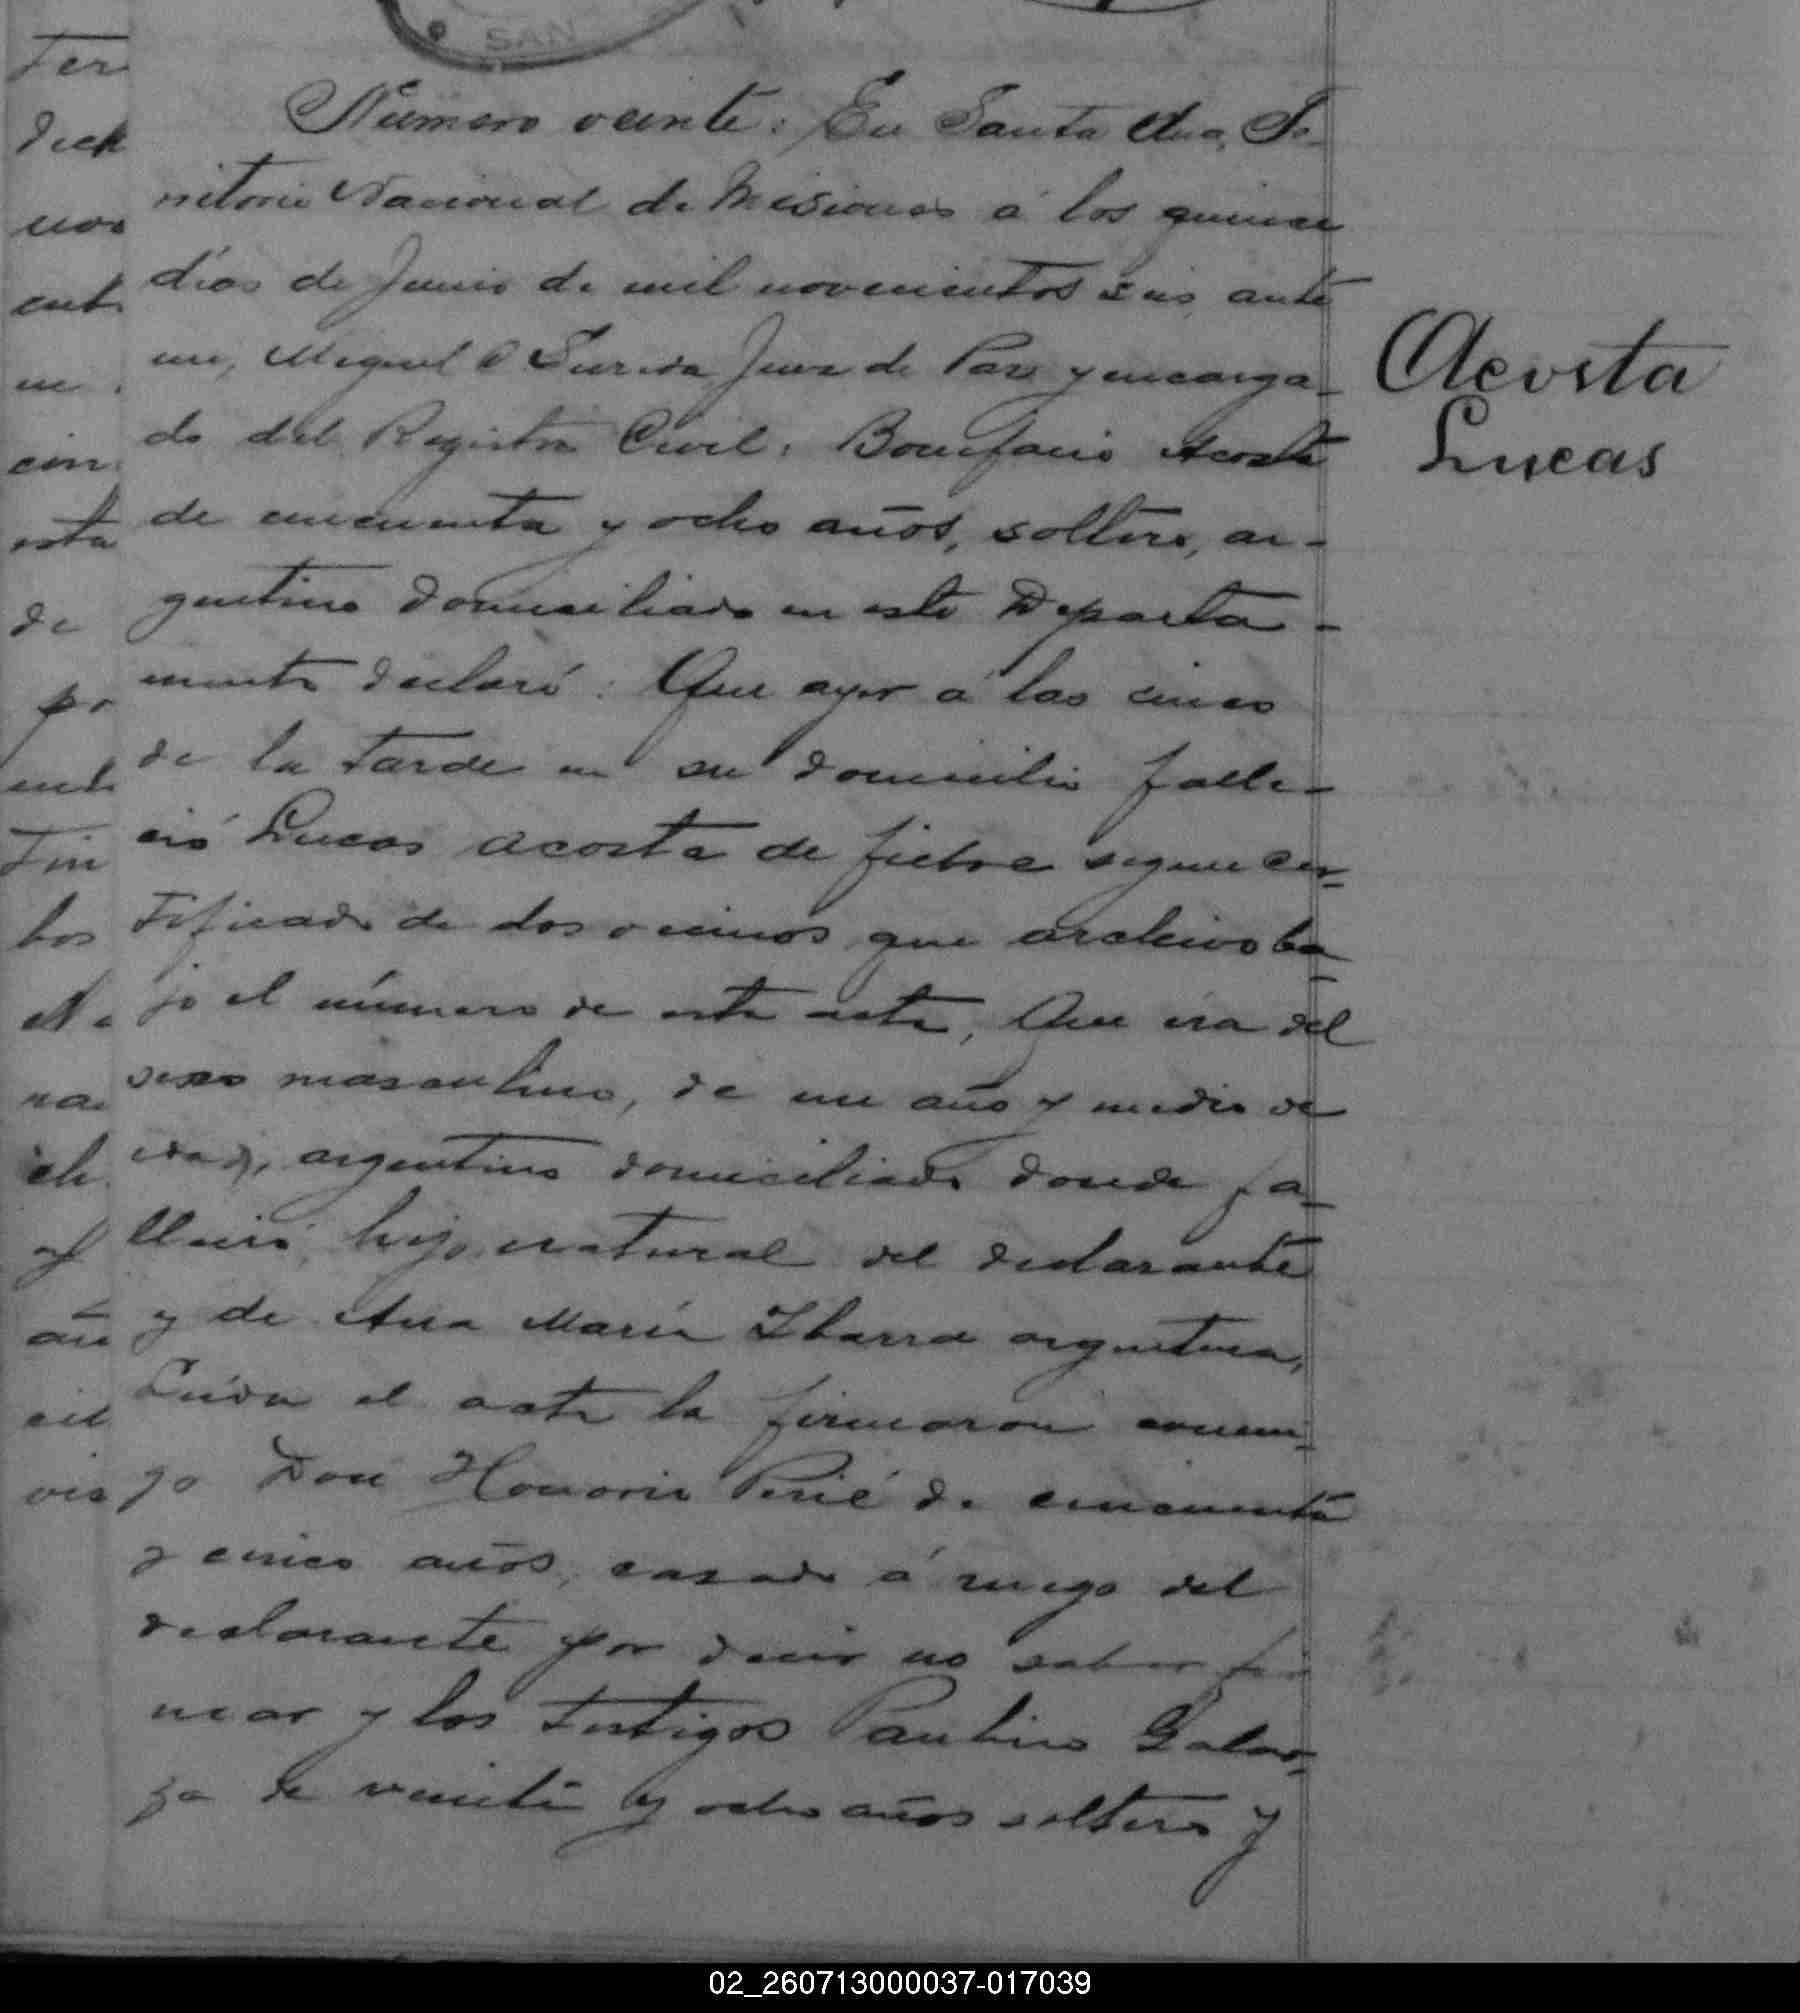 SAN
Número veinte: En Santa Ana, Te-
rritorio Nacional de Misiones á los quince
días de Junio de mil novecientos seis, ante
mi, Miguel Juez de Paz y encarga-
do del Registro Civil: Bonifacio Acosta
de cincuenta y ocho años, soltero, ar-
gentino domiciliado en este Departa-
mento declaró: Que ayer á las cinco
de la tarde en su domicilio falle-
ció Lucas Acosta de fiebre segun cer-
tificado de dos vecinos que archivo ba-
jo el número de esta acta, Que era del
sexo masculino, de un año y medio de
edad, argentino domiciliado donde fa-
lleció, hijo natural del declarante
y de Ana María Ibarra argentina,
Leída el acta la firmaron conmi-
go Don Honorio Perié de cincuenta
y cinco años, casado á ruego del
declarante por decir no saber fir
mar y los testigos Paulino Galar-
za de veinte y ocho años soltero y
Acosta
Lucas
02_260713000037-017039